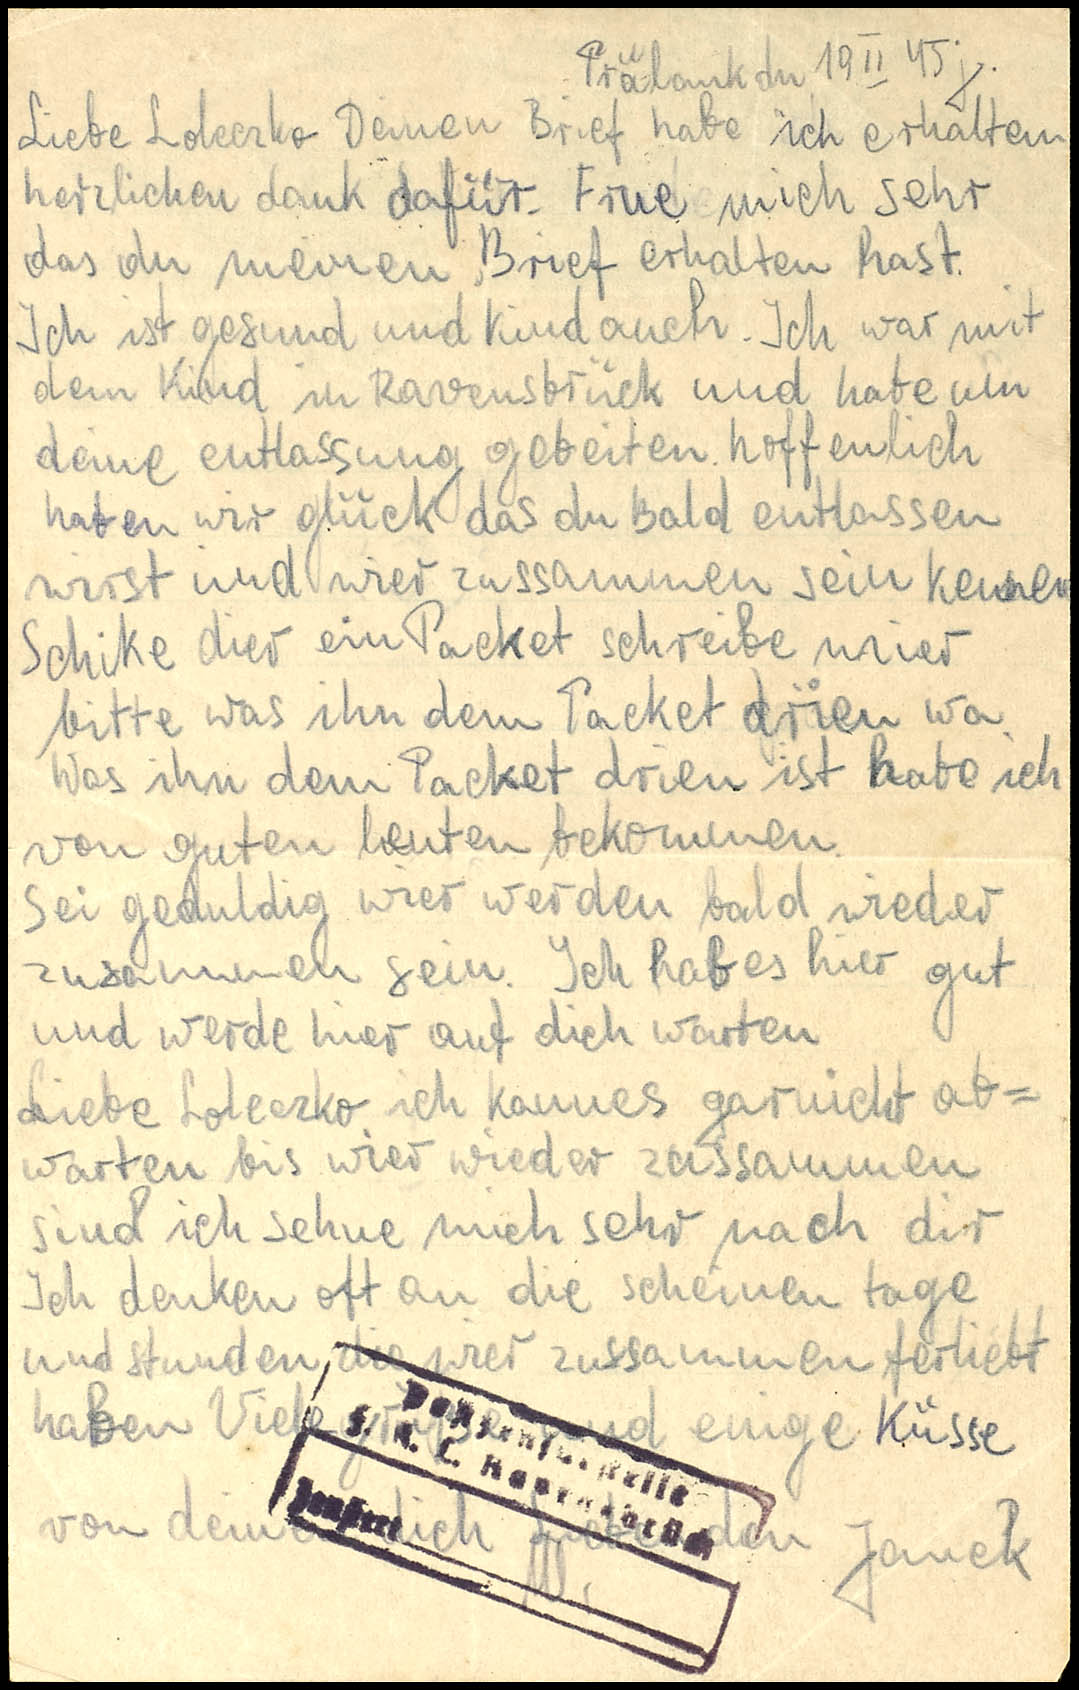 Prälank du 19 II 45 j.
Liebe Loleczko Deinen Brief habe ich erhalten
herzlichen dank dafüür. Frue mich sehr
das du meinen Brief erhalten hast.
Ich ist gesund und Kind auch. Ich war mit
dem Kind in Ravensbrück und habe um
deine entlassung gebeiten. hoffenlich
haben wir glück das du Bald entlassen
wirst und wier zussammen sein kennen
Schike dier ein Packet schreibe mier
bitte was ihn dem Packet drien wa
Was ihn dem Packet drien ist habe ich
von guten leuten bekommen.
Sei geduldig wier werden bald wieder
zusammen sein. Ich hab es hier gut
und werde hier auf dich warten
Liebe Loleczko ich kannes garnicht ab=
warten bis wier wieder zussammen
sind ich sehne mich sehr nach dir
Ich denken oft an die scheinen tage
und stunden die wier zussammen ferliebt
haben Viele grüsse und einige Küsse
von deinen dich den Janek
Postzensurstelle
F. K. L. Ravensbrück
Zensiert